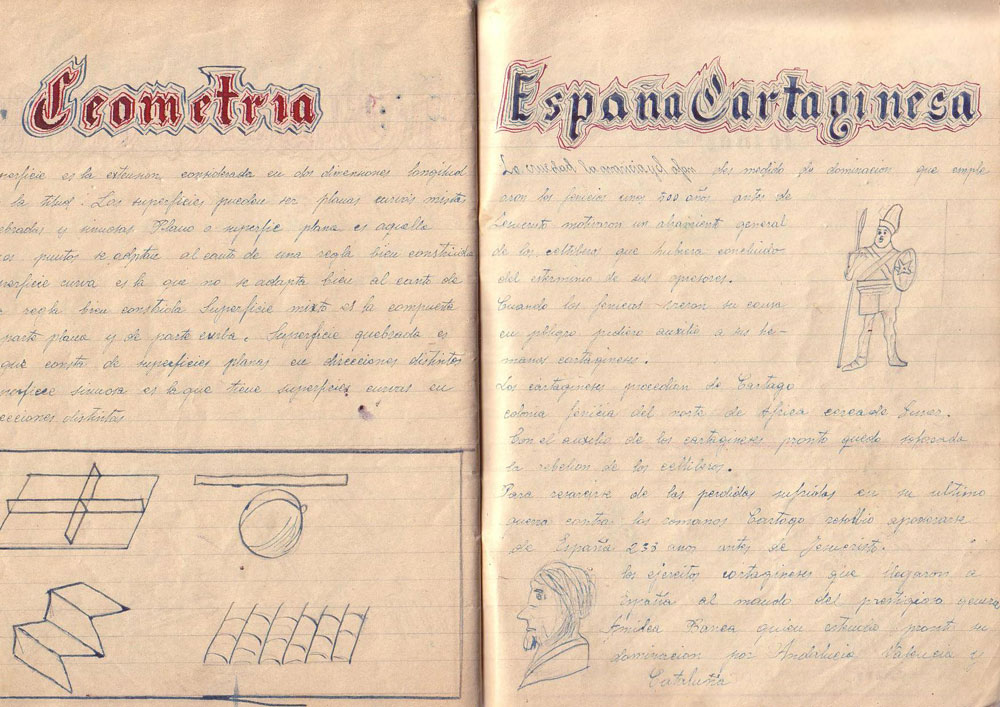 Geometria
perficie es la extension considerada en dos dimensiones longitud
la titud. Las superficies pueden ser planas curvas mistas
ebradas y sinuosas Plano o superfic plana es aquella
puntos se adptic al canto de una regla bien constiuida
perficie curva es la que no se adapta bien al canto de
regla bien constiida Superficie mixto es la compuesta
parte plana y de parte curba. Superficie quebrada es
que consta de superficies planas en direcciones distintas
perficie sinuosa es la que tiene superficies curvas en
ecciones distintas
España Cartaginesa
La crueldad la avaricia y el des medido de dominacion que emple
aron los fenicios unos 500 años antes de
Jesucrist motivaron un alzamient general
de los celtiberos que hubiera concluido
del esterminio de sus opresores.
Cuando los fenicios vieron su causa
en peligro pidiero auxilio a sus her-
manos cartagineses.
Los cartagineses procedian de Cartago
colonia fenicia del norte de Africa cerca de
Con el auxilio de los cartagineses pronto quedo sofocada
la rebelion de los celtiberos.
Para resarcirse de las perdidas sufridas en su ultimo
guerra contra los romanos Cartago resolbio apoderarse
de España 238 anos antes de Jesucristo.
los ejercitos cartagineses que llegaron a
al mando del prestigioso genera
Amilca Barca quien estendio pronto su
dominacion por Andalucia Valencia y
Cataluña